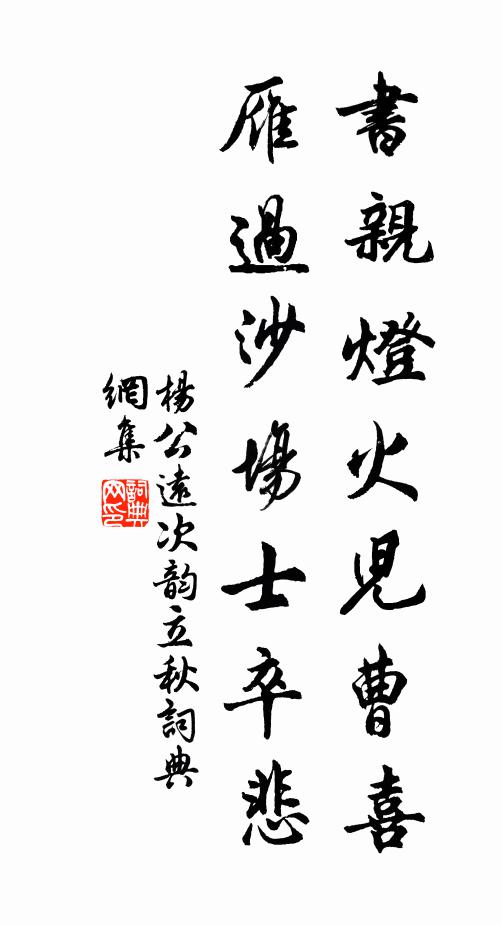 書親燈火兒曹喜
雁過沙場士卒悲
楊公遠次韵立秋詞典
網集
詞典
网印